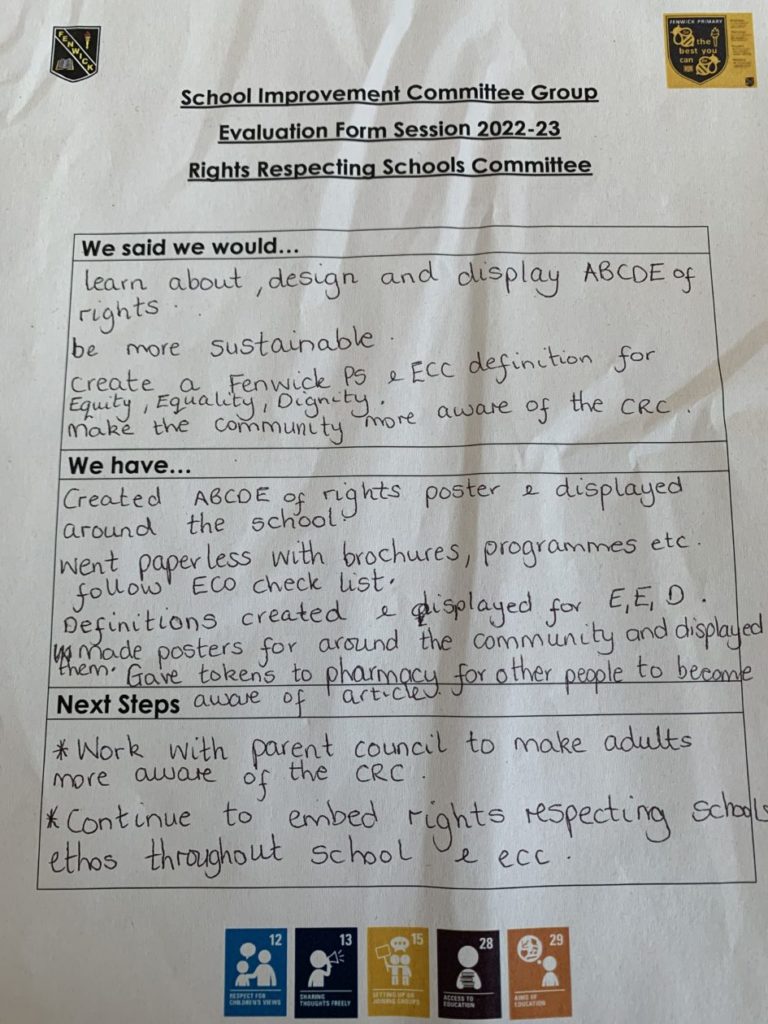 FENWICK
FENWICK PRIMARY
the
best you
can
School Improvement Committee Group
Evaluation Form Session 2022-23
Rights Respecting Schools Committee
We said we would...
learn about, design and display ABCDE of
rights.
be more sustainable.
Create a Fenwick PS & ECC definition for
Equity, Equality, Dignity.
Make the community more aware of the CRC.
We have...
Created ABCDE of rights poster & displayed
around the school.
Went paperless with brochures, programmes etc.
follow ECO check list.
Definitions created & displayed for E, E, D.
Made posters for around the community and displayed
them. Gave tokens to pharmacy for other people to become
aware of articles.
Next Steps
* Work with parent council to make adults
more aware of the CRC.
* Continue to embed rights respecting schools
ethos throughout school & ecc.
12
RESPECT FOR
CHILDREN'S VIEWS
13
SHARING
THOUGHTS FREELY
15
SETTING UP OR
JOINING GROUPS
28
ACCESS TO
EDUCATION
29
AIMS OF
EDUCATION